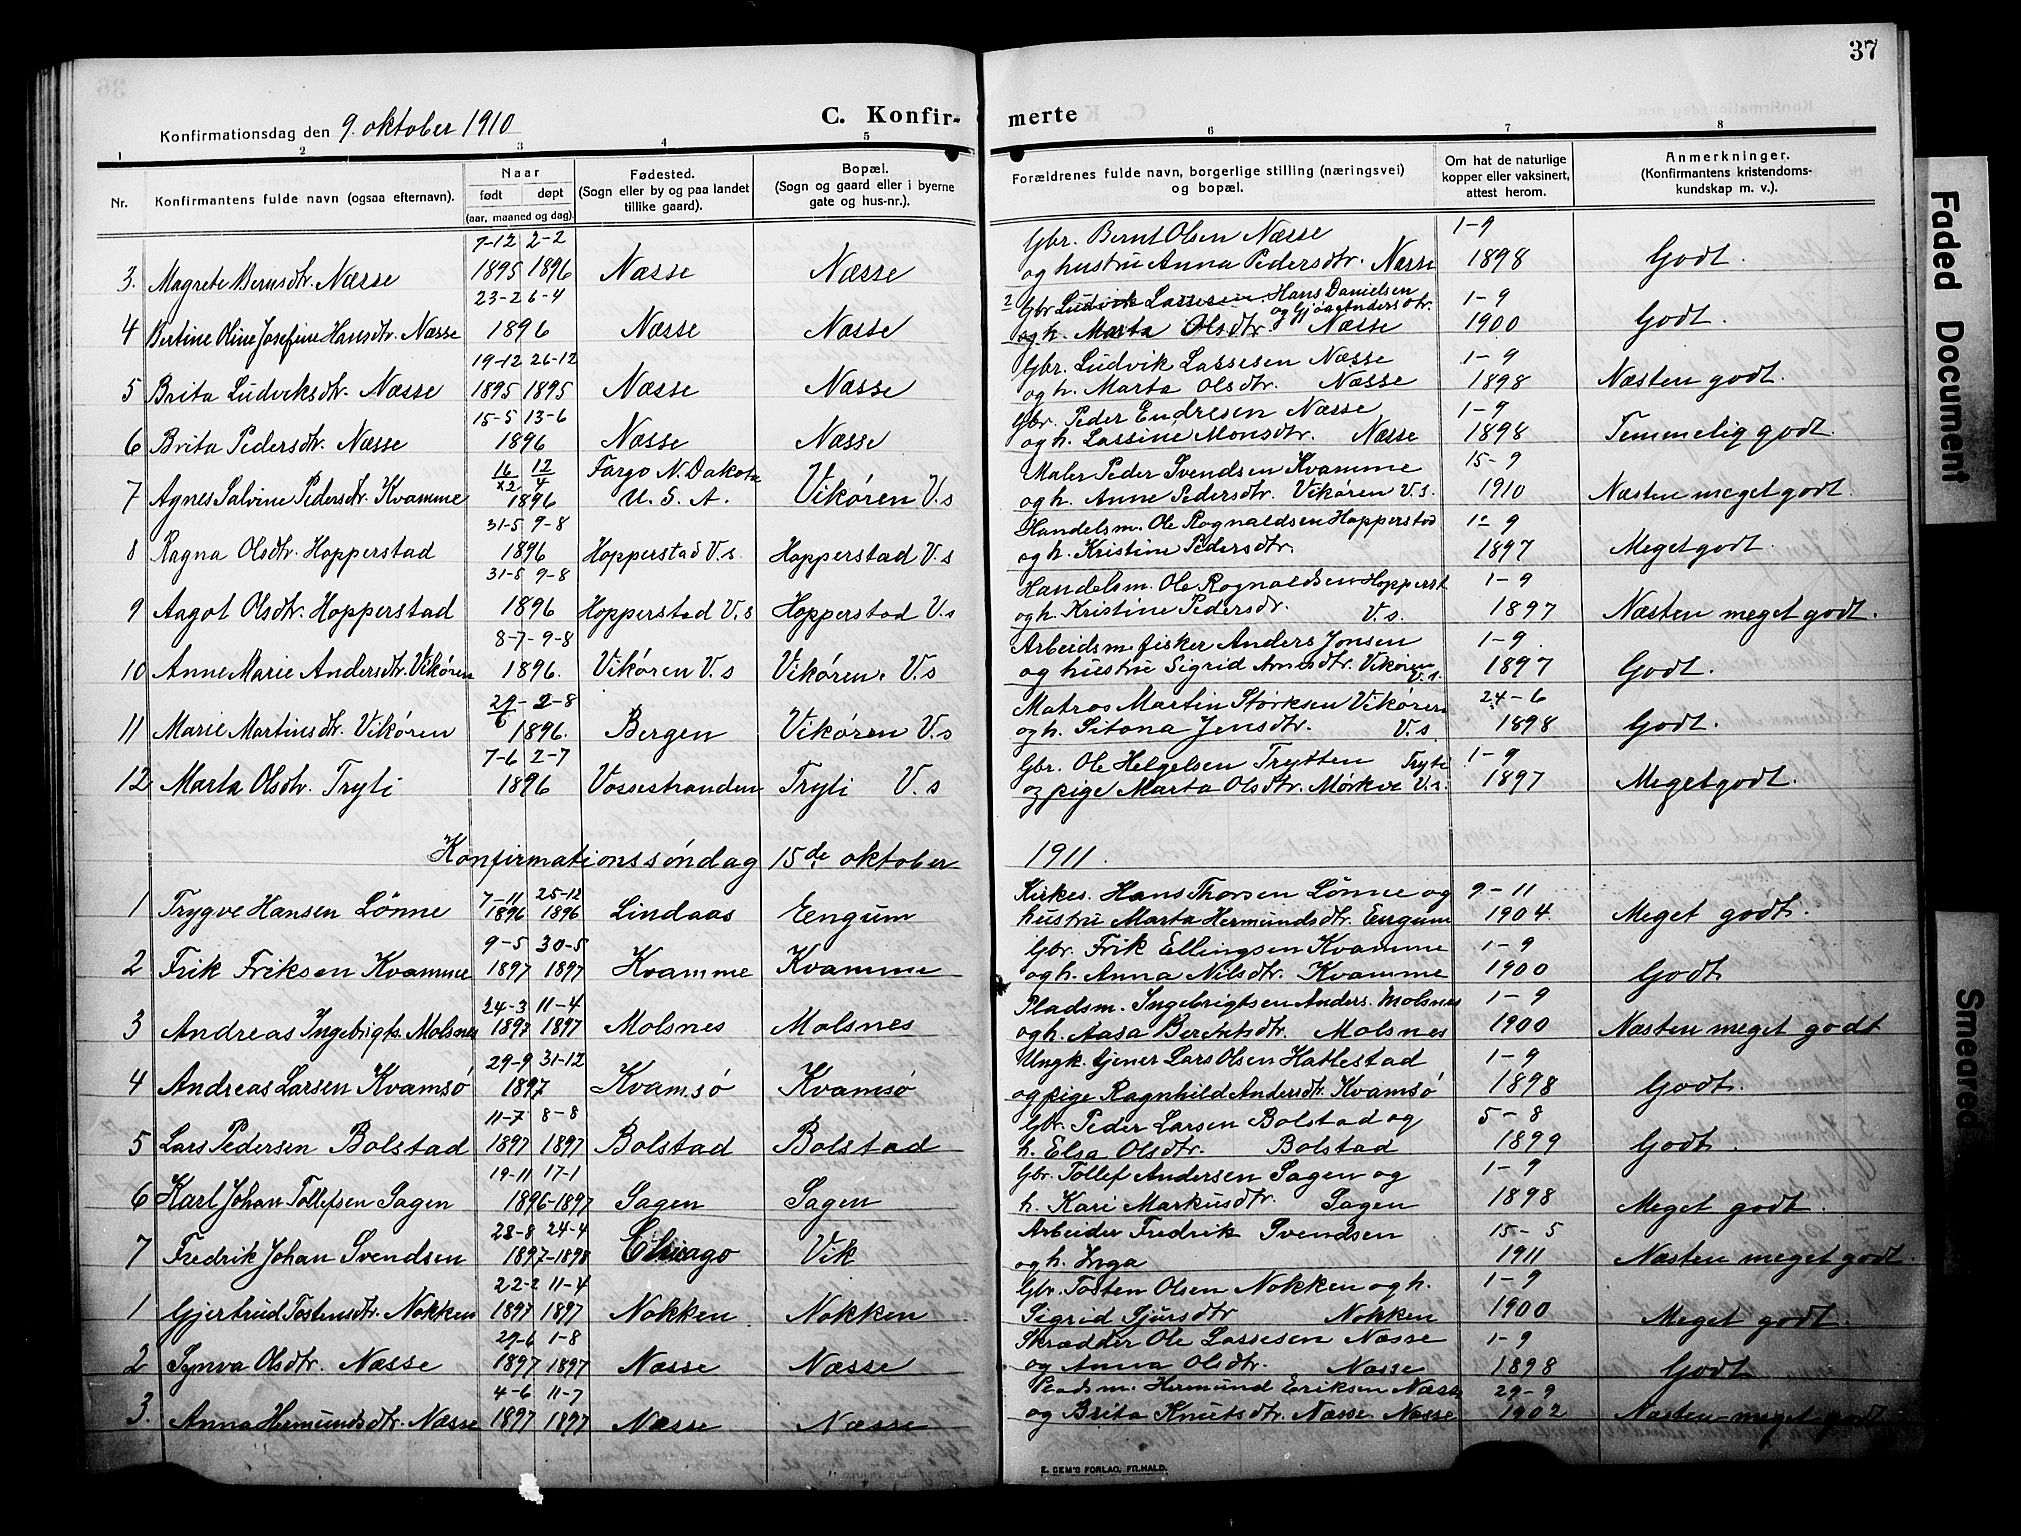 37
Konfirmationsdag den 9. oktober 1910
C. Konfir- merte
1 2 3 4 5 6 7 8
Nr. Konfirmantens fulde navn (ogsaa efternavn). Naar født døpt (aar, maaned og dag). Fødested. (Sogn eller by og paa landet tillike gaard). Bopæl. (Sogn og gaard eller i byerne gate og hus-nr.). Forældrenes fulde navn, borgerlige stilling (næringsvei) og bopæl. Om hat de naturlige kopper eller vaksinert, attest herom. Anmerkninger. (Konfirmantens kristendomskundskap m. v.).
7-12 2-2 Gbr. Bernt Olsen Næsse 1-9
3. Magrete Bernsdtr. Næsse 1895 1896 Næsse Næsse og hustru Anna Pedersdtr. Næsse 1898 Godt.
23-2 6-4 2 Gbr Ludvik Lassesen Hans Danielsen og Gjøa Andersdtr. 1-9
4 Bertine Oline Josefine Hansdtr. Næsse 1896 Næsse Næsse og h. Marta Olsdtr. Næsse 1900 Godt.
19-12 26-12 Gbr. Ludvik Lassesen Næsse 1-9
5 Brita Ludviksdtr. Næsse 1895 1895 Næsse Næsse og h. Marta Olsdtr. Næsse 1898 Næsten godt.
15-5 13-6 Gbr. Peder Endresen Næsse 1-9
6 Brita Pedersdtr. Næsse 1896 Næsse Næsse og h. Lassine Monsdtr. Næsse 1898 Temmelig godt.
16/x2 12/4 Fargo N. Dakota Maler Peder Svendsen Kvamme 15-9
7 Agnes Salvine Pedersdtr. Kvamme 1896 U. S. A. Vikøren V.s og h. Anne Pedersdtr. Vikøren V.s. 1910 Næsten meget godt.
31-5 9-8 Handelsm. Ole Rognaldsen Hopperstad 1-9
8 Ragna Olsdtr. Hopperstad 1896 Hopperstad V.s. Hopperstad V.s og h. Kristine Pedersdtr. 1897 Meget godt.
31-5 9-8 Handelsm. Ole Rognaldsen Hopperst 1-9
9 Aagot Olsdtr. Hopperstad 1896 Hopperstad V.s Hopperstad V.s og h. Kristine Pedersdr. V.s. 1897 Næsten meget godt.
8-7- 9-8 Arbeidsm. fisker Anders Jonsen 1-9.
10 Anne Marie Andersdtr. Vikøren 1896. Vikøren V.s Vikøren. V.s og hustru Sigrid Arnesdtr. Vikøren V.s. 1897 Godt.
29/6 - 2-8 Matros Martin Størksen Vikøren 24-6
11 Marie Martinsdtr. Vikøren 1896. Bergen Vikøren V.s og h. Sitona Jensdtr. V.s. 1898 Godt.
7-6 2-7 Gbr. Ole Helgelsen Trytten Tryti 1-9
12 Marta Olsdtr. Tryti 1896 Vossestranden Tryti V.s og pige Marta Olsdtr. Mørkve V.s. 1897 Meget godt.
Konfirmationssøndag 15de oktober 1911.
7-11 25-12 Kirkes. Hans Thorsen Lønne og 9-11
1 Trygve Hansen Lønne 1896 1896 Lindaas Eengum hustru Marta Hermundsdtr. Eengum 1904. Meget godt.
9-5 30-5 Gbr. Frik Ellingsen Kvamme 1-9
2 Frik Friksen Kvamme 1897 1897 Kvamme Kvamme og h. Anna Nilsdtr. Kvamme 1900 Godt
24-3 11-4 Pladsm. Ingebrigtsen Anders. Molsnes 1-9
3 Andreas Ingebrigts. Molsnes 1897 1897 Molsnes Molsnes og h. Aasa Berentsdtr. Molsnes 1900 Næsten meget godt
29-9 31-12 Ungk. tjener Lars Olsen Hatlestad 1-9
4 Andreas Larsen Kvamsø 1897 Kvamsø Kvamsø og pige Ragnhild Andersdtr. Kvamsø 1898 Godt.
11-7 8-8 Gbr. Peder Larsen Bolstad og 5-8
5 Lars Pedersen Bolstad 1897 1897 Bolstad Bolstad h. Elsa Olsdtr. Bolstad 1899 Godt.
19-11 17-1 Gbr. Tollef Andersen Sagen og 1-9
6 Karl Johan Tollefsen Sagen 1896-1897 Sagen Sagen h. Kari Markusdtr. Sagen 1898 Meget godt.
28-8 24-4 Arbeider Fredrik Svendsen 15-5
7 Fredrik Johan Svendsen 1897-1898 Chicago Vik og h. Inga 1911 Næsten meget godt.
22-2 11-4 Gbr. Tosten Olsen Nokken og h. 1-9
1 Gjertrud Tostensdtr. Nokken 1897 1897 Nokken Nokken Sigrid Sjursdtr Nokken 1900 Meget godt.
29-6 1-8 Skrædder Ole Lassesen Næsse 1-9
2 Synva Olsdtr. Næsse 1897 1897 Næsse Næsse og Anna Olsdtr. Næsse 1898 Godt
4-6 11-7 Pladsm. Hermund Eriksen Næsse 29-9
3. Anna Hermundsdtr. Næsse 1897 1897 Næsse Næsse og Brita Knutsdtr. Næsse Næsse 1902 Næsten meget godt
E. SEM'S FORLAG, FR.HALD.
Faded Document
Smeared